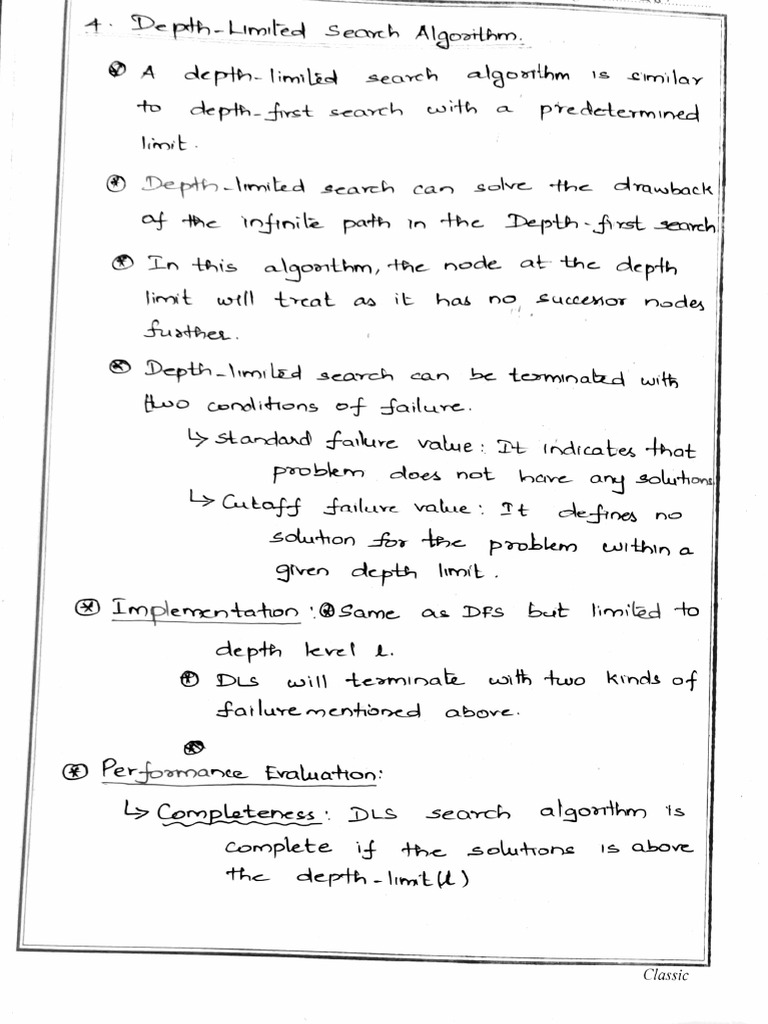 4. Depth-Limited Search Algorithm.
A depth-limited search algorithm is similar
to depth-first search with a predetermined
limit.
Depth-limited search can solve the drawback
of the infinite path in the Depth-first search
In this algorithm, the node at the depth
limit will treat as it has no successor nodes
further.
Depth-limited search can be terminated with
two conditions of failure.
↳ Standard failure value: It indicates that
problem does not have any solutions
↳ Cutoff failure value: It defines no
solution for the problem within a
given depth limit.
Implementation: Same as DFS but limited to
depth level l.
DLS will terminate with two kinds of
failure mentioned above.
Performance Evaluation:
↳ Completeness: DLS search algorithm is
complete if the solutions is above
the depth-limit(l)
Classic